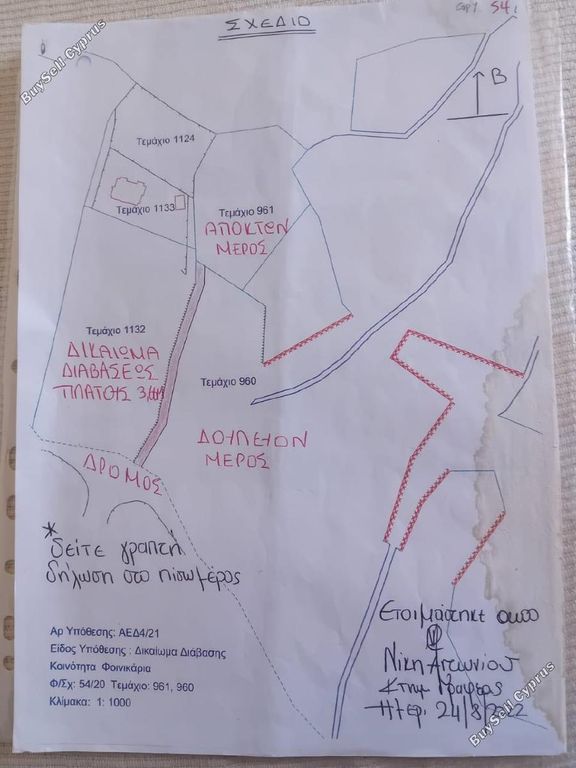 ΣΧΕΔΙΟ
54
BuySell Cyprus
Β
Τεμάχιο 1124
Τεμάχιο 1133
Τεμάχιο 961
ΑΠΟΚΤΩΝ
ΜΕΡΟΣ
Τεμάχιο 1132
ΔΙΚΑΙΩΜΑ
ΔΙΑΒΑΣΕΩΣ
ΠΛΑΤΟΥΣ
Τεμάχιο 960
ΔΟΥΛΕΥΟΝ
ΜΕΡΟΣ
ΔΡΟΜΟΣ
* δείτε γραπτή
δήλωση στο πίσω μέρος
Ετοιμάστηκε από
Νίκη Αντωνίου
Κτημ. Γραφέας
Ημερ. 24/8/2022
Αρ Υπόθεσης: ΑΕΔ4/21
Είδος Υπόθεσης : Δικαίωμα Διάβασης
Κοινότητα Φοινικάρια
Φ/Σχ: 54/20 Τεμάχιο: 961, 960
Κλίμακα: 1: 1000
BuySell Cyprus